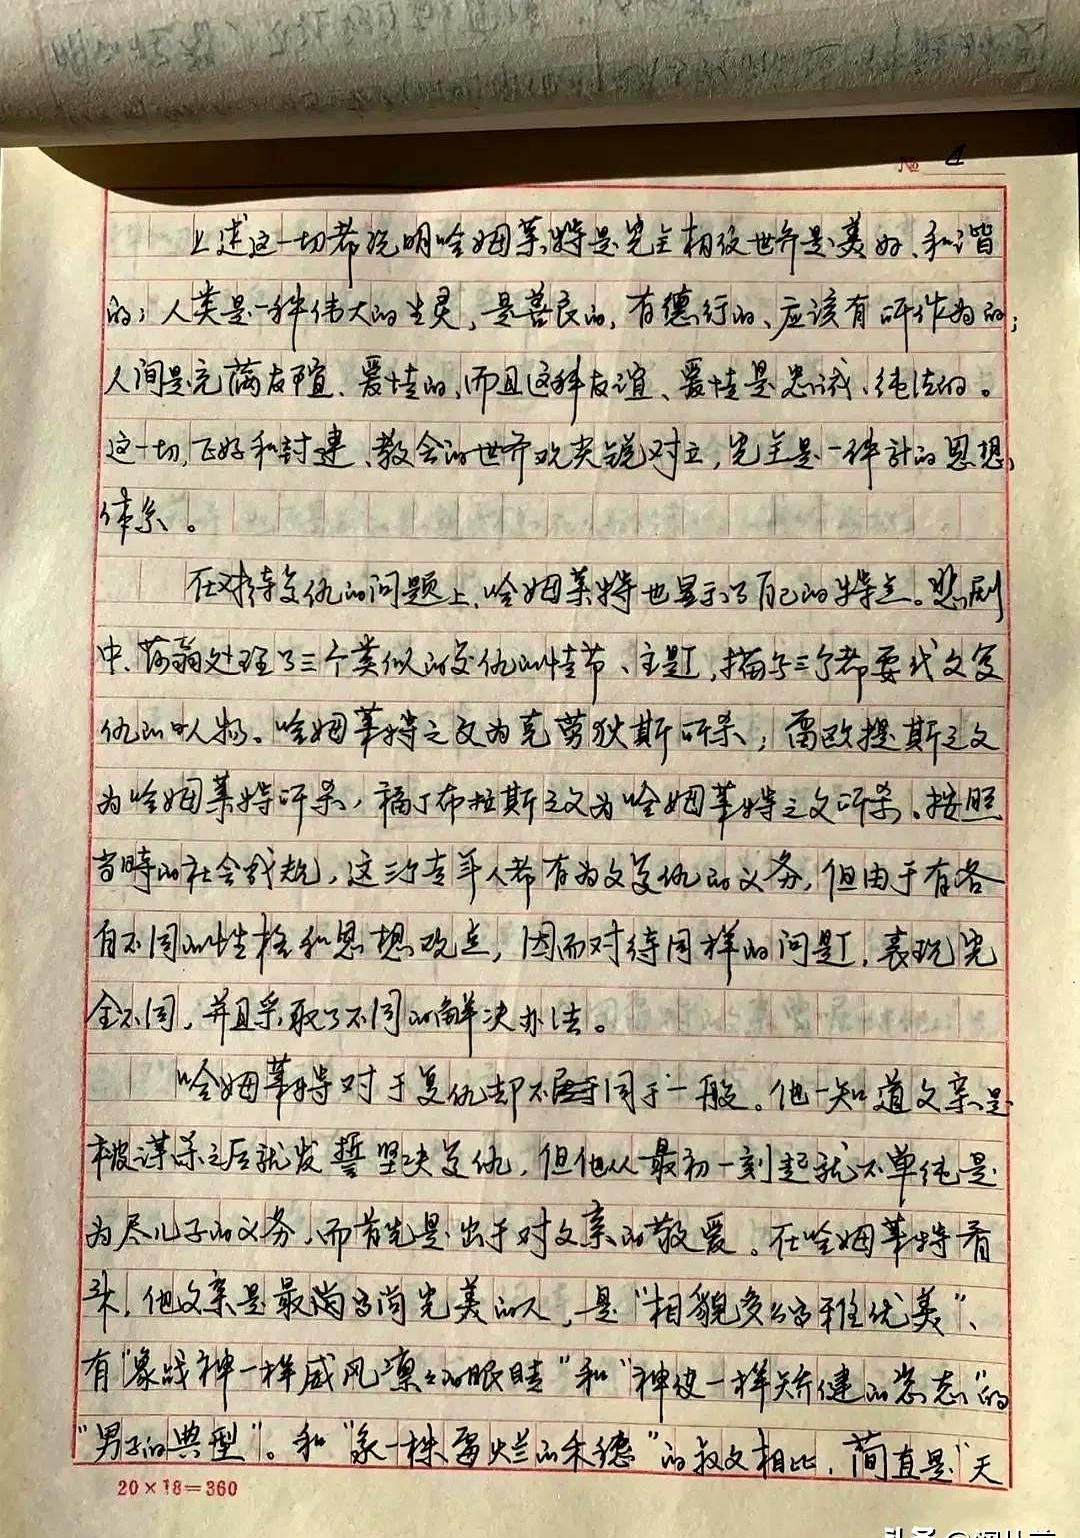 № 4
上述这一切都说明哈姆莱特是完全相信世界是美好、和谐
的；人类是一种伟大的生灵，是善良的，有德行的、应该有所作为的；
人间是充满友谊、爱情的，而且这种友谊、爱情是忠诚、纯洁的。
这一切，正好和封建、教会的世界观尖锐对立，完全是一种新的思想
体系。
在对待复仇的问题上，哈姆莱特也显示了自己的特点。悲剧
中，莎翁处理了三个类似的复仇的情节、主题，描写三个都要找父复
仇的人物。哈姆莱特之父为克劳狄斯所杀；雷欧提斯之父
为哈姆莱特所杀，福丁布拉斯之父为哈姆莱特之父所杀。按照
当时的社会成规，这三个青年人都有为父复仇的义务，但由于有各
自不同的性格和思想观点，因而对待同样的问题，表现完
全不同，并且采取了不同的解决办法。
哈姆莱特对于复仇却不同于一般。他一知道父亲是
被谋杀之后就发誓坚决复仇，但他从最初一刻起就不单纯是
为尽儿子的义务，而首先是出于对父亲的敬爱。在哈姆莱特看
来，他父亲是最高尚完美的人，是“相貌多么高雅优美”、
有“象战神一样威风凛凛的眼睛”和“神使一样矫健的姿态”的
“男子的典型”。和“象一株霉烂的禾穗”的叔父相比，简直是“天
20×18=360
头条